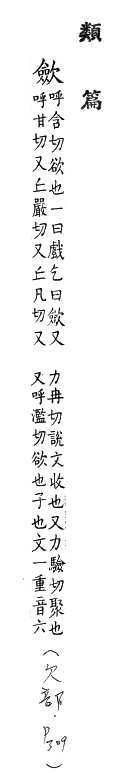 類篇
歛
呼含切欲也一曰戲乞曰歛又
呼甘切又丘嚴切又丘凡切又
力冉切說文收也又力驗切聚也
又呼濫切欲也子也文一重音六
(欠部.P309)